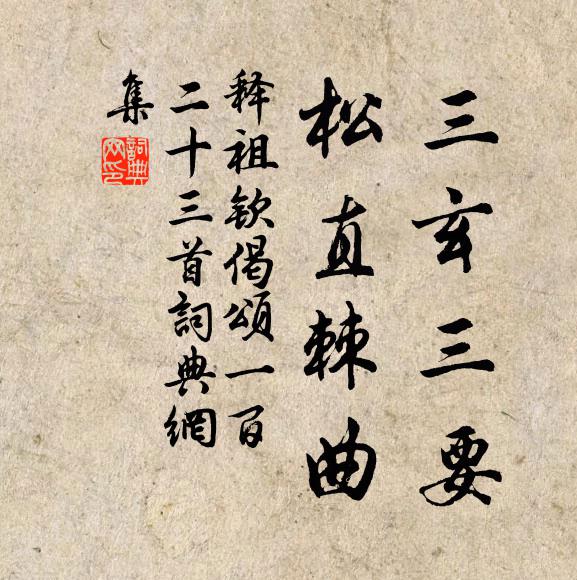 三玄三要
松直棘曲
释祖钦偈頌一百
二十三首詞典網
集
詞典
网印